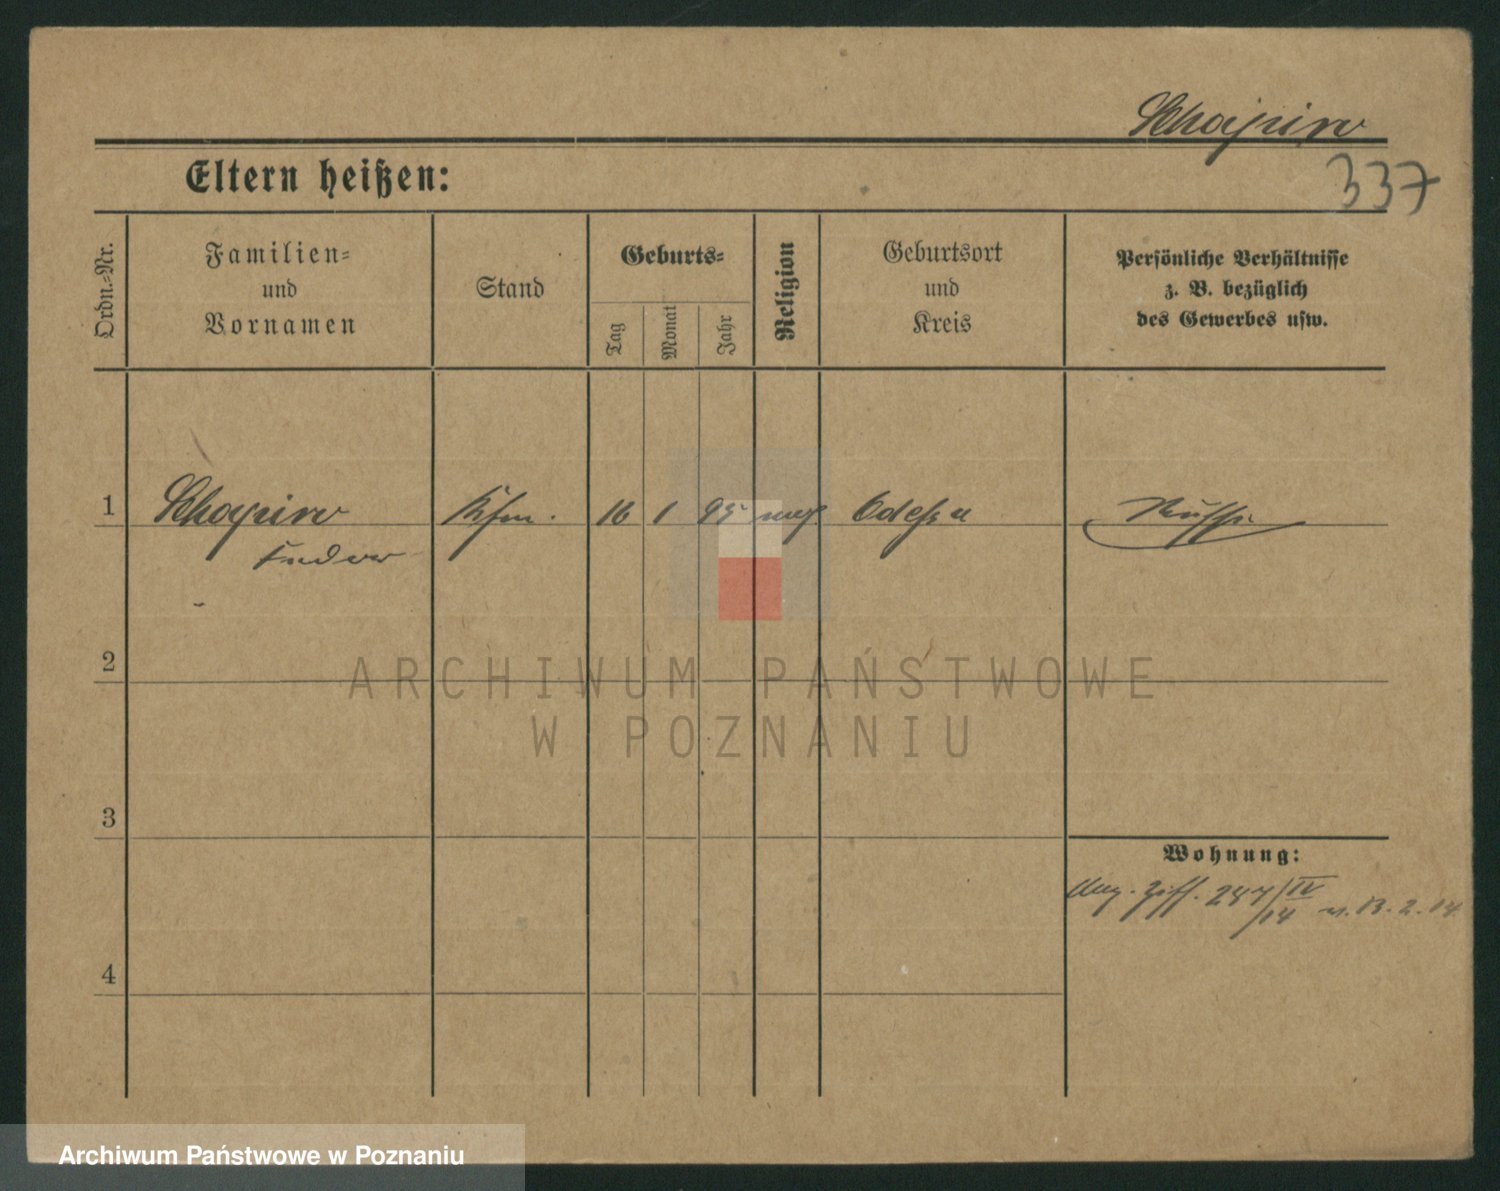 Schapiro
337
Eltern heißen:
Ordn.-Nr.
Familien-
und
Vornamen
Stand
Geburts-
Tag
Monat
Jahr
Religion
Geburtsort
und
Kreis
Persönliche Verhältnisse
z. B. bezüglich
des Gewerbes usw.
1
Schapiro
Kfm.
16
1
95
mos
Odessa
Russe
2
3
4
Wohnung:
Ziff. 247/IV
/14 v. 13.2.14.
ARCHIWUM PAŃSTWOWE
W POZNANIU
Archiwum Państwowe w Poznaniu